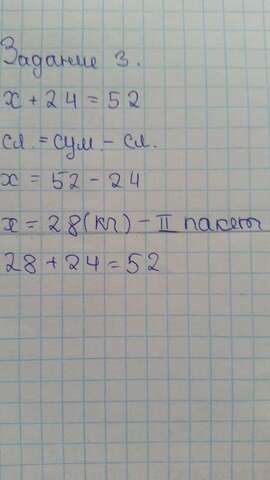 Задание 3.
x + 24 = 52
сл. = сум. - сл.
x = 52 - 24
x = 28 (кг) - II пакеты
28 + 24 = 52